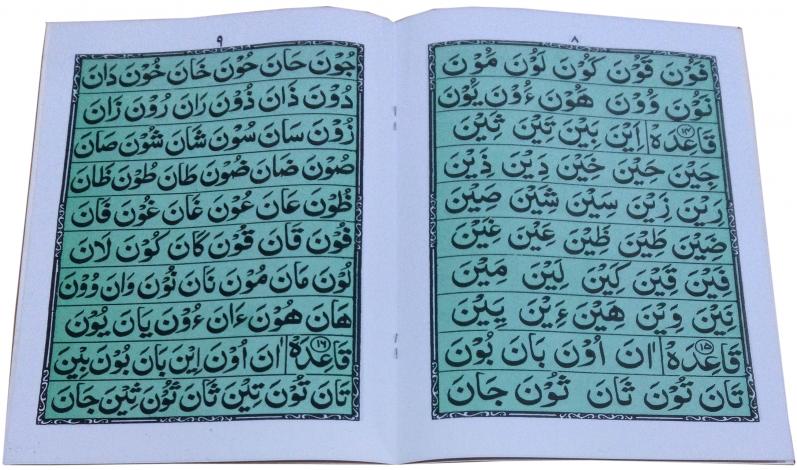 ۸
فَوْنَ قَوْنَ كَوْنَ لَوْنَ مَوْنَ
نَوْنَ وَوْنَ هَوْنَ ءَوْنَ يَوْنَ
قَاعِدَهْ ۱۴ اَيْنَ بَيْنَ تَيْنَ ثَيْنَ
جَيْنَ حَيْنَ خَيْنَ دَيْنَ ذَيْنَ
رَيْنَ زَيْنَ سَيْنَ شَيْنَ صَيْنَ
ضَيْنَ طَيْنَ ظَيْنَ عَيْنَ غَيْنَ
فَيْنَ قَيْنَ كَيْنَ لَيْنَ مَيْنَ
نَيْنَ وَيْنَ هَيْنَ ءَيْنَ يَيْنَ
قَاعِدَهْ ۱۵ اٰنَ اُوْنَ بَانَ بُوْنَ
تَانَ تُوْنَ ثَانَ ثُوْنَ جَانَ
۹
جُوْنَ حَانَ حُوْنَ خَانَ خُوْنَ دَانَ
دُوْنَ ذَانَ ذُوْنَ رَانَ رُوْنَ زَانَ
زُوْنَ سَانَ سُوْنَ شَانَ شُوْنَ صَانَ
صُوْنَ ضَانَ ضُوْنَ طَانَ طُوْنَ ظَانَ
ظُوْنَ عَانَ عُوْنَ غَانَ غُوْنَ فَانَ
فُوْنَ قَانَ قُوْنَ كَانَ كُوْنَ لَانَ
لُوْنَ مَانَ مُوْنَ نَانَ نُوْنَ وَانَ وُوْنَ
هَانَ هُوْنَ ءَانَ ءُوْنَ يَانَ يُوْنَ
قَاعِدَهْ ۱۶ اٰنَ اُوْنَ اِيْنَ بَانَ بُوْنَ بِيْنَ
تَانَ تُوْنَ تِيْنَ ثَانَ ثُوْنَ ثِيْنَ جَانَ